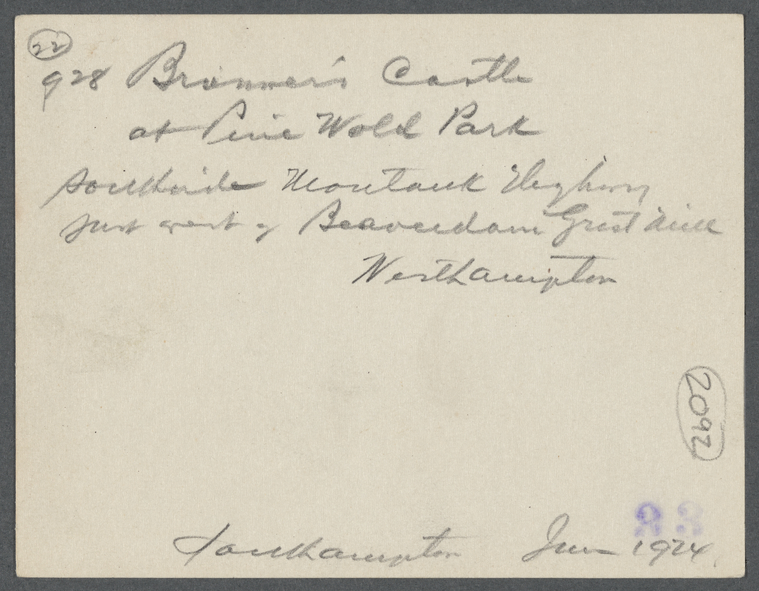 22
928 Brønner's Castle
at Pine Wold Park
Southside Montauk Highway
just west of Beaverdam Grist Mill
Westhampton
2092
33
Southampton June 1924